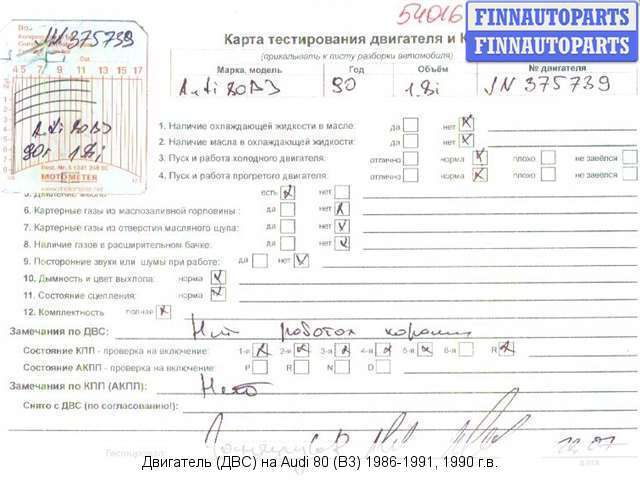 54016
FINNAUTOPARTS
FINNAUTOPARTS
JN 375739
Карта тестирования двигателя и К
(прикалывать к листу разборки автомобиля)
Марка, модель Год Объём № двигателя
Audi 80B3 90 1.8i JN 375739
4 5 7 9 11 13 15 17
Audi 80B3
90г. 1.8i
MOTOMETER
1. Наличие охлаждающей жидкости в масле: да нет X
2. Наличие масла в охлаждающей жидкости: да нет X
3. Пуск и работа холодного двигателя: отлично норма X плохо не завёлся
4. Пуск и работа прогретого двигателя: отлично норма X плохо не завёлся
5. Давление масла: есть X нет
6. Картерные газы из маслозаливной горловины : да нет X
7. Картерные газы из отверстия масляного щупа: да нет X
8. Наличие газов в расширительном бачке: да нет X
9. Посторонние звуки или шумы при работе: да нет X
10. Дымность и цвет выхлопа: норма X
11. Состояние сцепления: норма X
12. Комплектность полная X
Замечания по ДВС: Нет работал хорошо
Состояние КПП - проверка на включение: 1-я X 2-я X 3-я X 4-я X 5-я X 6-я R X
Состояние АКПП - проверка на включение: P R N D
Замечания по КПП (АКПП): Нет
Снято с ДВС (по согласованию!):
дата
Двигатель (ДВС) на Audi 80 (B3) 1986-1991, 1990 г.в.